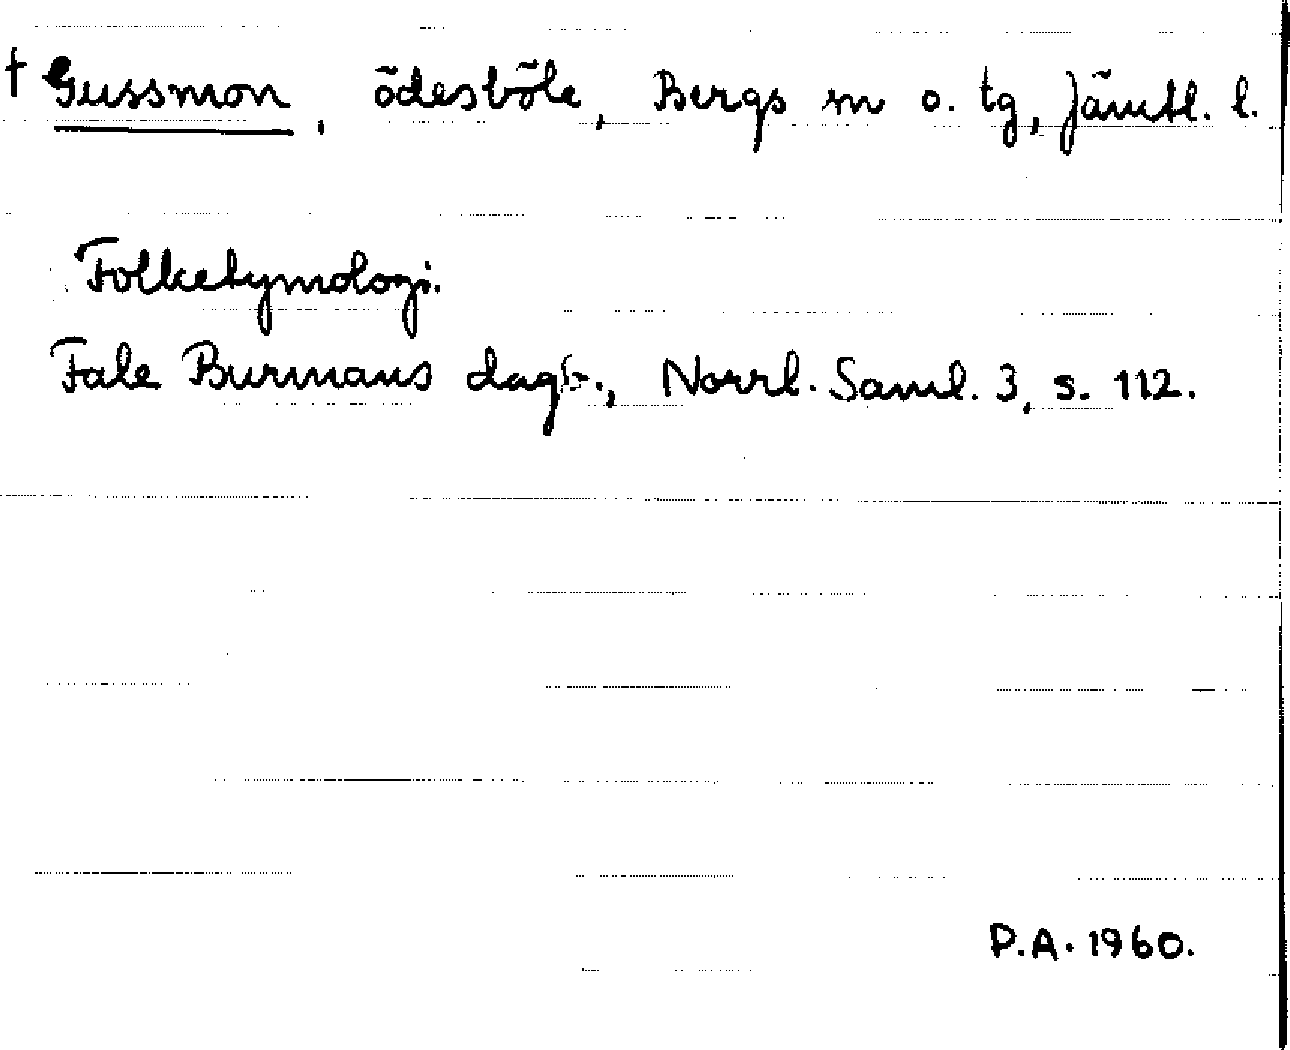 † Gussmon, ödesböle, Bergs sn o. tg, Jämtl. l.
Folketymologi.
Fale Burmans dagb., Norrl. Saml. 3, s. 112.
P.A. 1960.